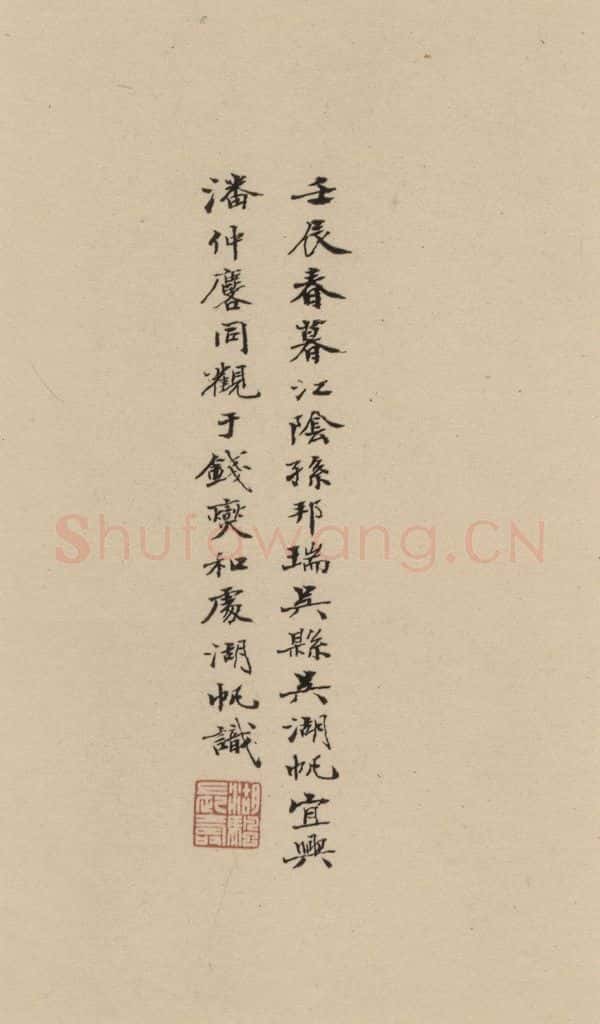 壬辰春暮江陰孫邦瑞吳縣吳湖帆宜興
潘仲麐同觀于錢爕和處湖帆識
Shufawang.CN